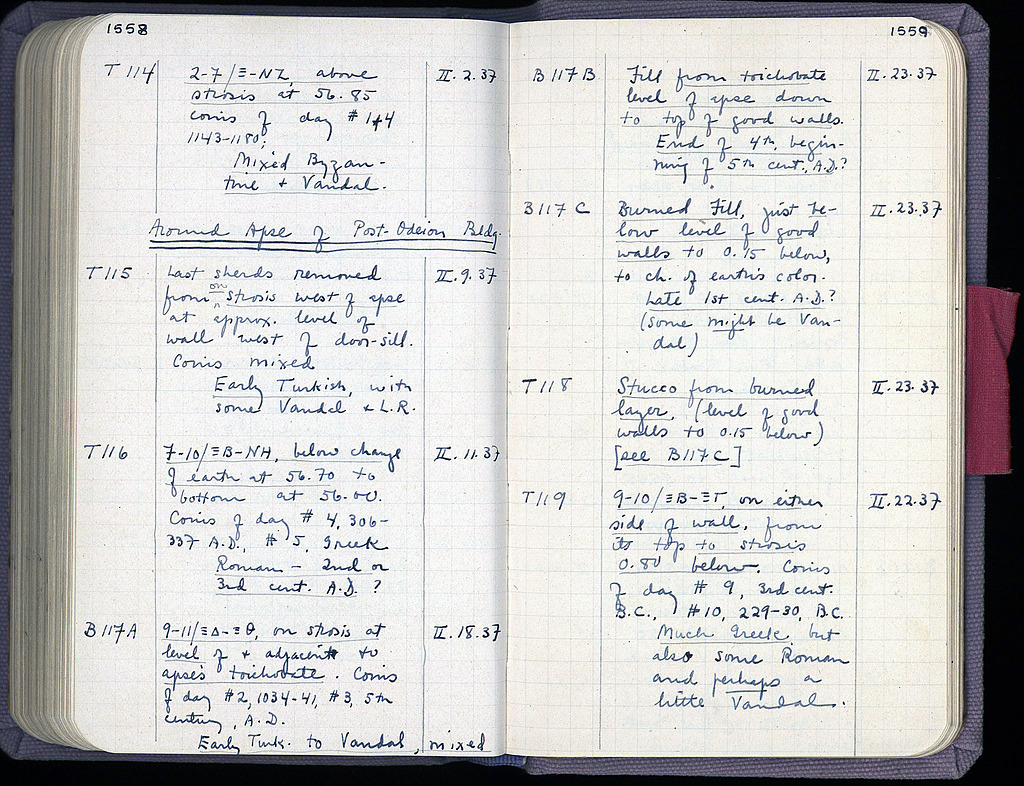 1558
T 114 2-7/Ξ-ΝΖ, above II.2.37
strosis at 56.85
Coins of day #1+4
1143-1180;
Mixed Byzan-
tine + Vandal.
Around Apse of Post-Odeion Bldg.
T 115 Last sherds removed II.9.37
from on strosis west of apse
at approx. level of
wall west of door-sill.
Coins mixed
Early Turkish, with
some Vandal + L.R.
T 116 7-10/ΞΒ-ΝΗ, below change II.11.37
of earth at 56.70 to
bottom at 56.00.
Coins of day # 4, 306-
337 A.D., # 5, Greek
Roman - 2nd or
3rd cent. A.D. ?
B 117A 9-11/ΞΔ-ΞΘ, on strosis at II.18.37
level of + adjacent to
apse's toichobate. Coins
of day #2, 1034-41, #3, 5th
century, A.D.
Early Turk. to Vandal, mixed
1559
B 117 B Fill from toichobate II.23.37
level of apse down
to top of good walls.
End of 4th, begin-
ning of 5th cent., A.D.?
B 117 C Burned Fill, just be- II.23.37
low level of good
walls to 0.15 below,
to ch. of earth's color.
Late 1st cent. A.D.?
(some might be Van-
dal)
T 118 Stucco from burned II.23.37
layer, (level of good
walls to 0.15 below)
[see B117C]
T 119 9-10/ΞΒ-ΞΓ, on either II.22.37
side of wall, from
its top to strosis
0.80 below. Coins
of day # 9, 3rd cent.
B.C., #10, 229-30, B.C.
Much Greek, but
also some Roman
and perhaps a
little Vandal.